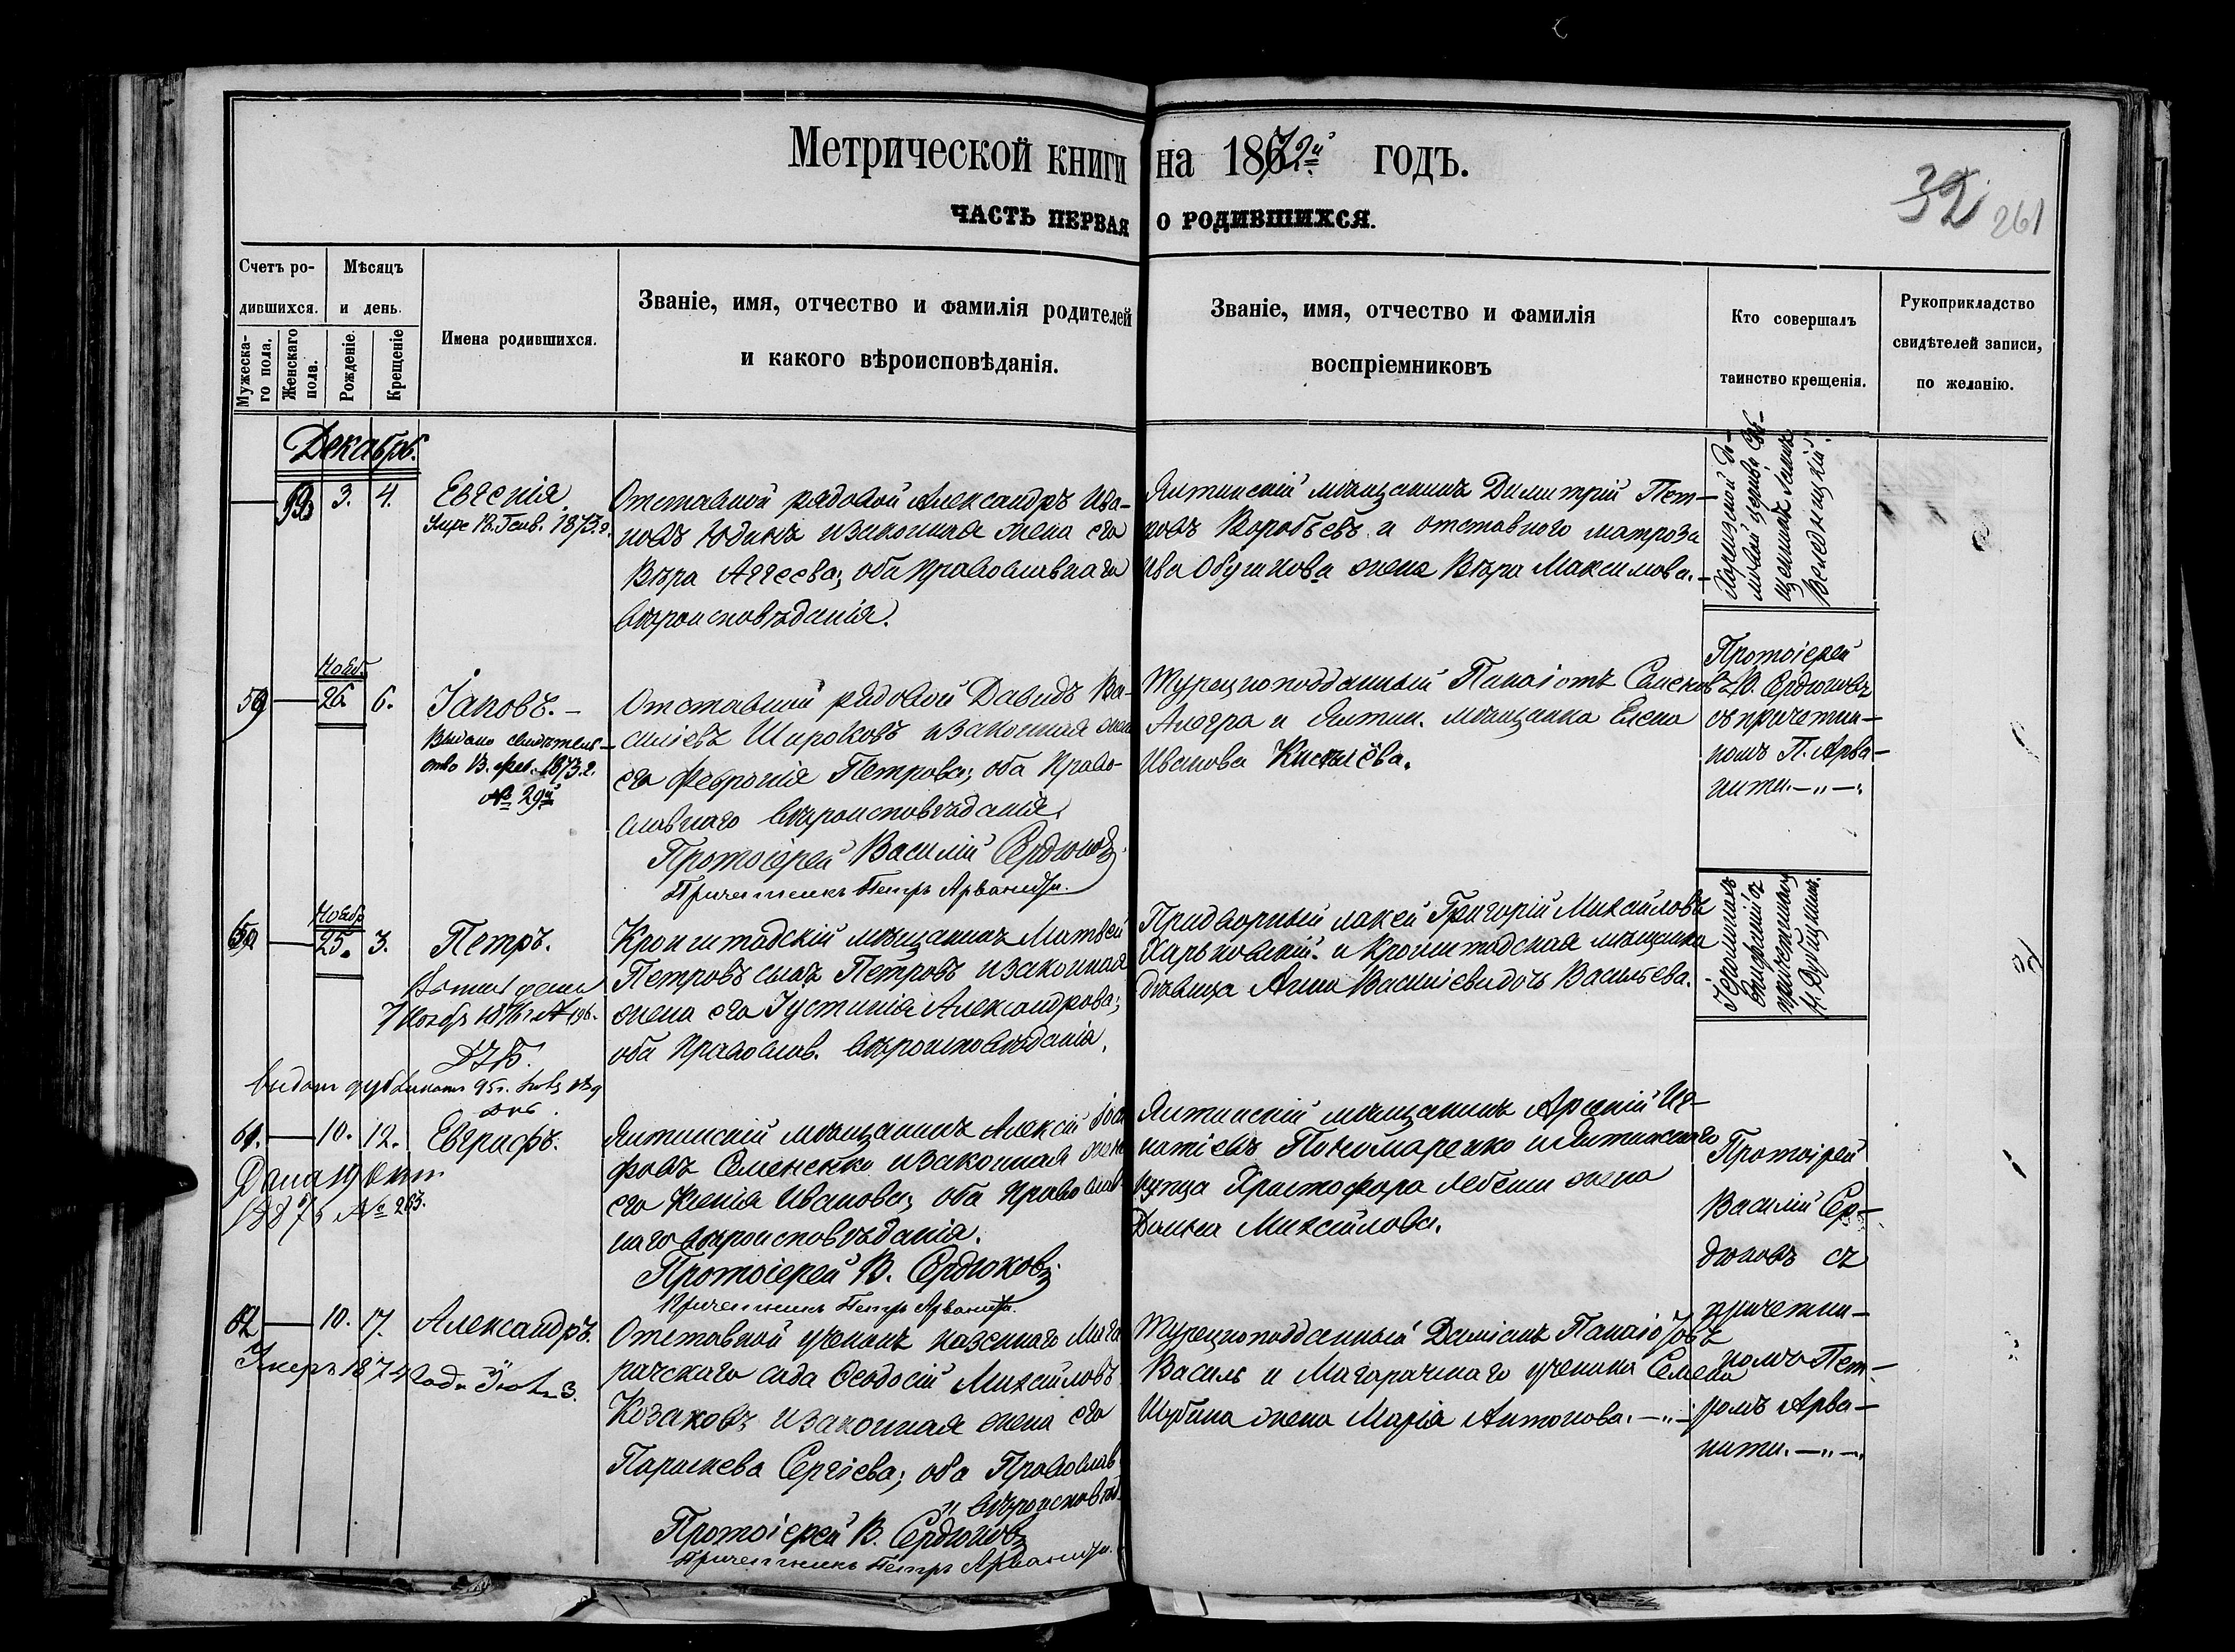 Метрической книги на 1872й годъ.
ЧАСТЬ ПЕРВАЯ О РОДИВШИХСЯ.
32 261
Счетъ родившихся.
Мѣсяцъ и день.
Мужескаго пола.
Женскаго пола.
Рожденіе.
Крещеніе
Имена родившихся.
Званіе, имя, отчество и фамилія родителей
и какого вѣроисповѣданія.
Званіе, имя, отчество и фамилія
воспріемниковъ
Кто совершалъ
таинство крещенія.
Рукоприкладство
свидѣтелей записи,
по желанію.
Декабрь.
3. 4.
Евгенія.
Умре 12. Генв. 1873. г.
Отставной рядовой Александръ Ива-
новъ Юдинъ и законная жена его
Вѣра Аггеева; оба православнаго
вѣроисповѣданія.
Ялтинскій мѣщанинъ Димитрій Пет-
ровъ Воробьевъ и отставного матроза
жена Вѣра Максимова.
мовой церкви Св-
щенникъ
59 Нояб. 26. 6.
Іаковъ.
Выдано свидѣтель-
ство 13. фев. 1873. г.
№ 29й
Отставной рядовой Давидъ Ва-
силіевъ Широковъ и законная жена
его Феврони́я Петрова; оба Право-
славнаго вѣроисповѣданія.
Протоіерей Василій Сердюковъ
Причетникъ Петръ Арваниди.
Турецкоподданный Панаіотъ
и Ялтин. мѣщанка Елена
Иванова
Протоіерей
В. Сердюковъ
съ причетни-
комъ П. Арва-
нити.
60 Нояб. 25. 3.
Петръ.
7 Ноябр №196.
Кронштадскій мѣщанинъ Матвей
Петровъ сынъ Петровъ и законная
жена его Іустинія Александрова;
оба Православ. вѣроисповѣданія.
Придворный лакей Григорій Михайловъ
Харьковскій и Кронштадская мѣщанка
дѣвица Анна Василіева дочь Васильева.
Іеромонахъ
Епифаній съ
причетникомъ
61. 10. 12.
Евграфъ.
Дана 19
№ 263.
Ялтинскій мѣщанинъ Алексій Іоси
фовъ Семененко и законная жена
его Ксенія Иванова; оба Православ
наго вѣроисповѣданія.
Протоіерей В. Сердюковъ
Причетникъ Петръ Арваниди.
Ялтинскій мѣщанинъ Арсеній Иг-
натіевъ Пономаренко и Ялтинскаго
купца Христофора жена
Михайлова.
Протоіерей
Василій Сер-
дюковъ съ
причетни-
комъ Пет-
ромъ Арва-
нити.
62 10. 17.
Александръ.
Умеръ 1874 года Іюля 3.
Отставной ученикъ казеннаго Мага
рачскаго сада Феодосій Михайловъ
Козаковъ и законная жена его
Параскева Сергіева; оба Православ
н. вѣроисповѣд.
Протоіерей В. Сердюковъ
Причетникъ Петръ Арваниди.
Турецкоподданный Даміанъ Панаіотовъ
Василь и Магарачнаго ученика Семена
Шубина жена Марія Антонова.